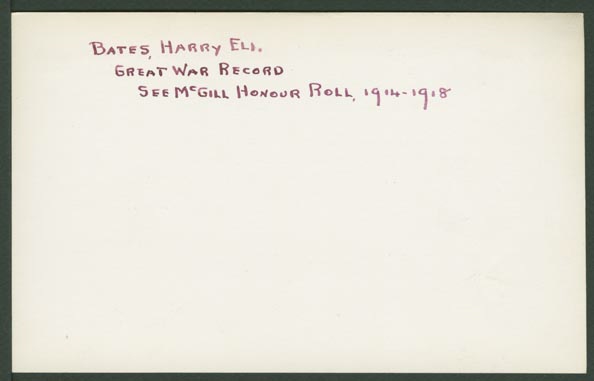 BATES, HARRY ELI.
GREAT WAR RECORD
SEE McGILL HONOUR ROLL, 1914-1918